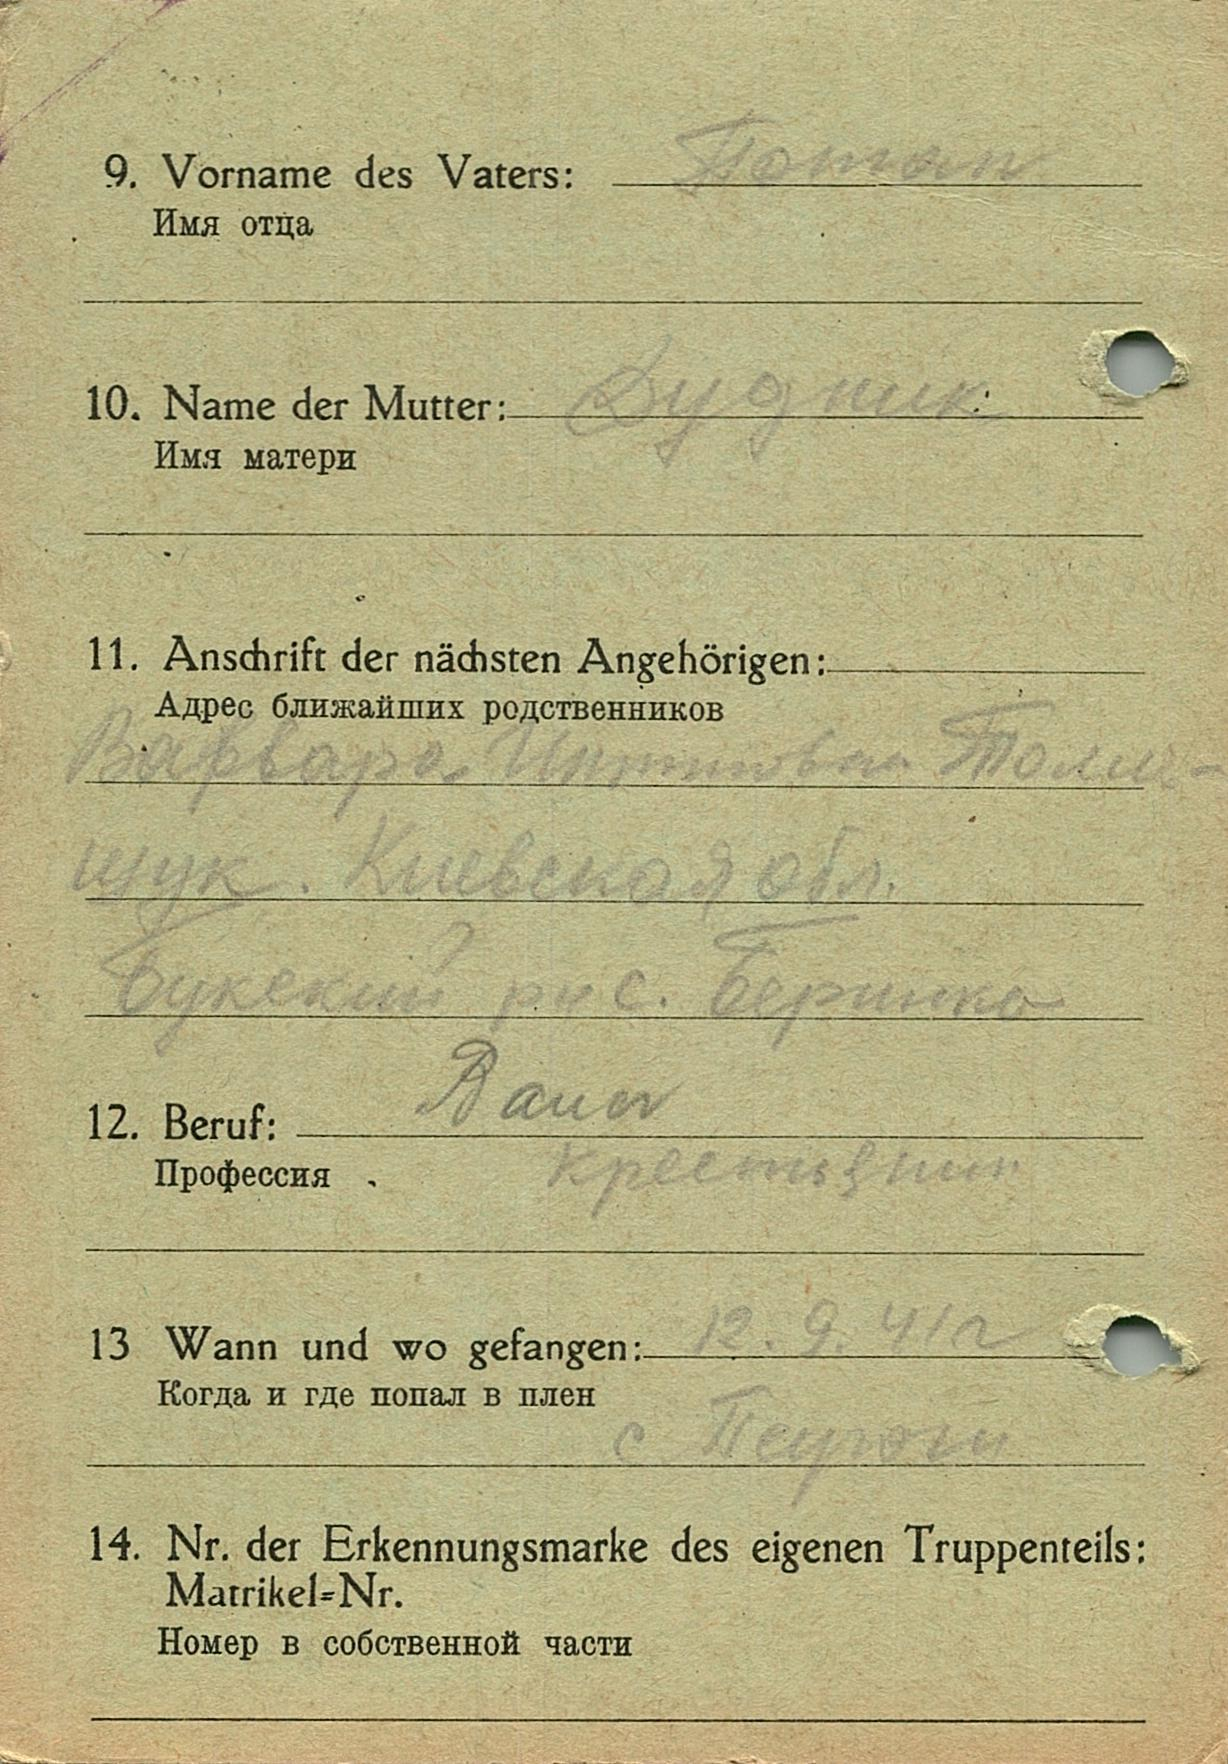 9. Vorname des Vaters: Потап
Имя отца
10. Name der Mutter: Дудник
Имя матери
11. Anschrift der nächsten Angehörigen:
Адрес ближайших родственников
Варвара
щук. Киевская обл.
Букский рн с.
12. Beruf: Bauer
Профессия крестьянин
13 Wann und wo gefangen: 12. 9. 41 г
Когда и где попал в плен
с
14. Nr. der Erkennungsmarke des eigenen Truppenteils:
Matrikel=Nr.
Номер в собственной части